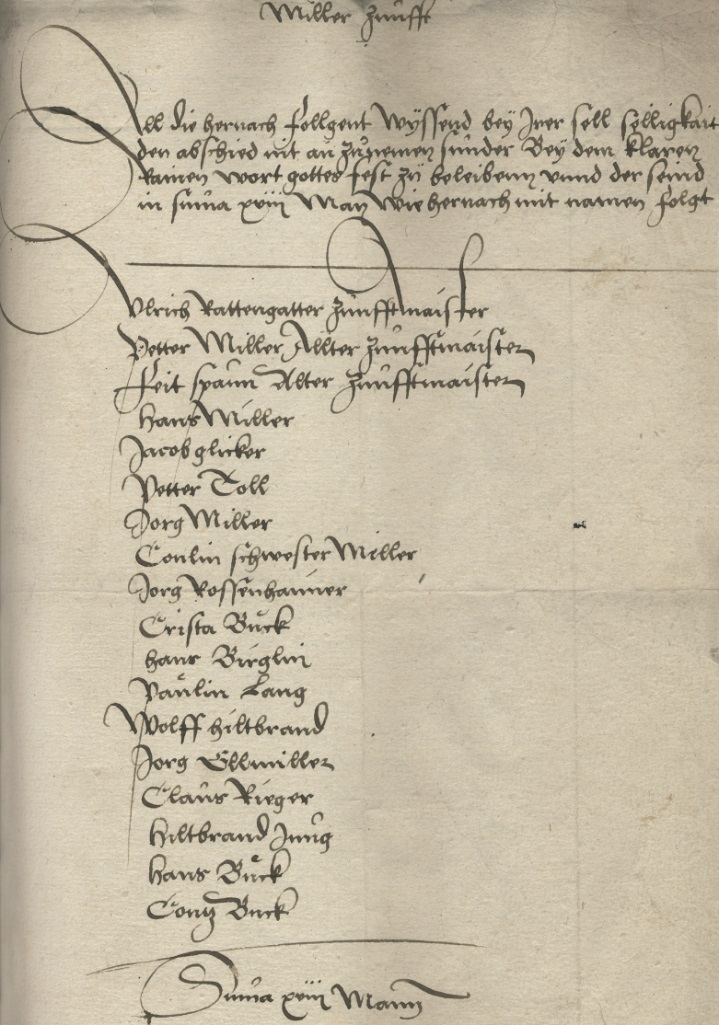 Miller Zunfft
All die hernach follgent wyssend bey Irer sell selligkait
den abschied nit an zunemen sunder Bey dem klaren
Rainen wort gottes fest zu beleibenn vnnd der seind
in suma xviij Man wie hernach mit namen folgt
Vlrich Rattengatter Zunfftmaister
Petter Miller Allter Zunfftmaister
Feit spaun Alter Zunfftmaister
Hans Miller
Jacob glicker
Petter Toll
Jorg Miller
Conlin schwester Miller
Jorg Rossenhamer
Crista Buck
Hans Bieglin
Paulin Lang
Wolff hiltbrand
Jorg Ellmiller
Claus Rieger
Hiltbrand Jung
Hans Buck
Contz Buck
Suma xviij Mann